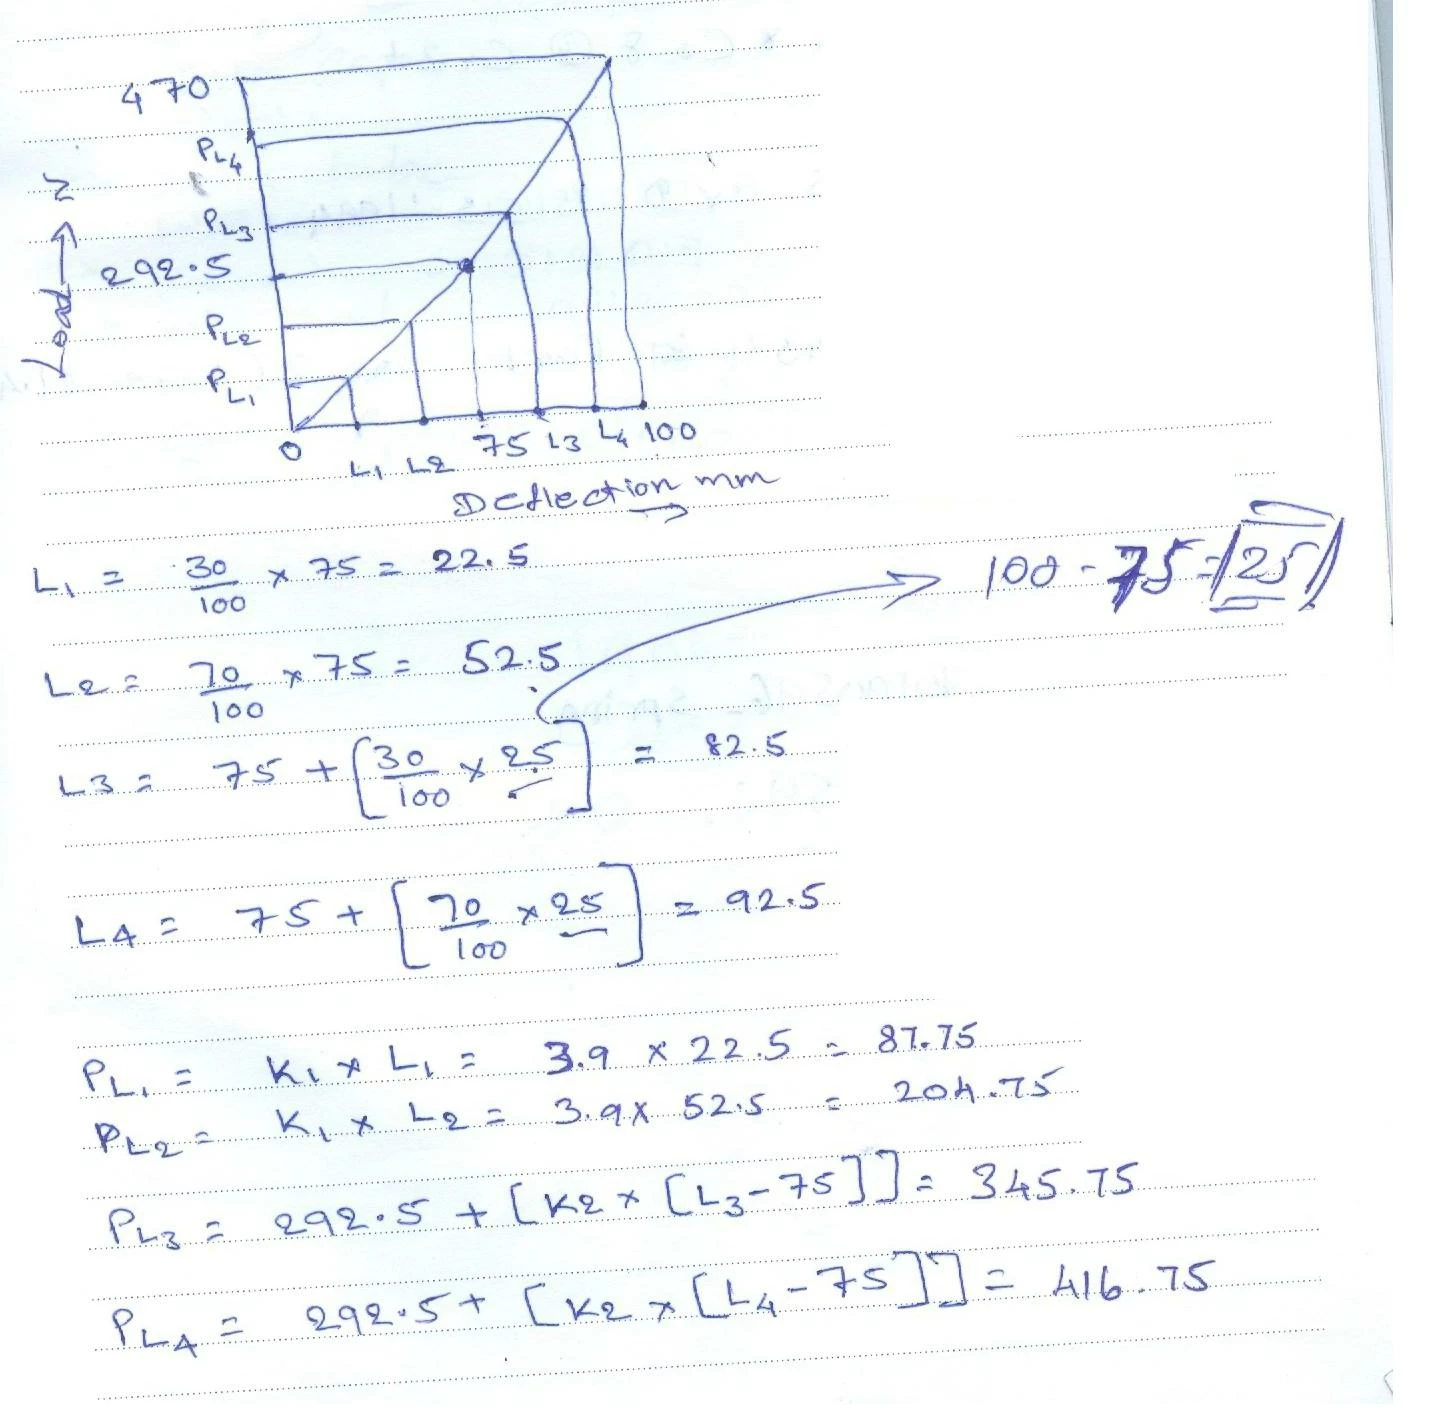 470
PL4
PL3
292.5
PL2
PL1
Load → N
0 L1 L2 75 L3 L4 100
Deflection mm
L1 = 30/100 × 75 = 22.5
100 - 75 = 25
L2 = 70/100 × 75 = 52.5
L3 = 75 + [30/100 × 25] = 82.5
L4 = 75 + [70/100 × 25] = 92.5
PL1 = K1 × L1 = 3.9 × 22.5 = 87.75
PL2 = K1 × L2 = 3.9 × 52.5 = 204.75
PL3 = 292.5 + [K2 × [L3 - 75]] = 345.75
PL4 = 292.5 + [K2 × [L4 - 75]] = 416.75